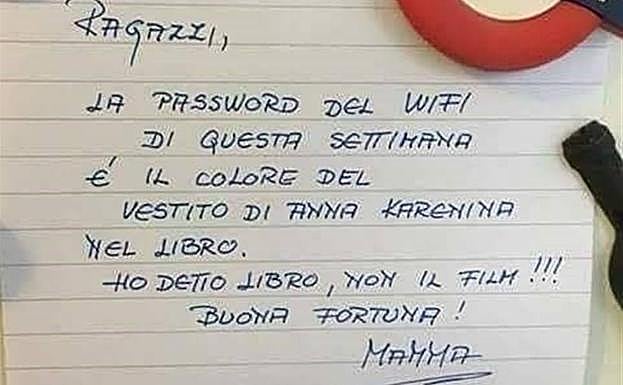 RAGAZZI,
LA PASSWORD DEL WIFI
DI QUESTA SETTIMANA
É IL COLORE DEL
VESTITO DI ANNA KARENINA
NEL LIBRO.
HO DETTO LIBRO, NON IL FILM!!!
BUONA FORTUNA!
MAMMA